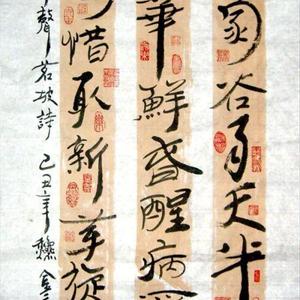 家谷雨天半
華鮮春醒病
惜取新芽旋
聲茗坡詩己丑年